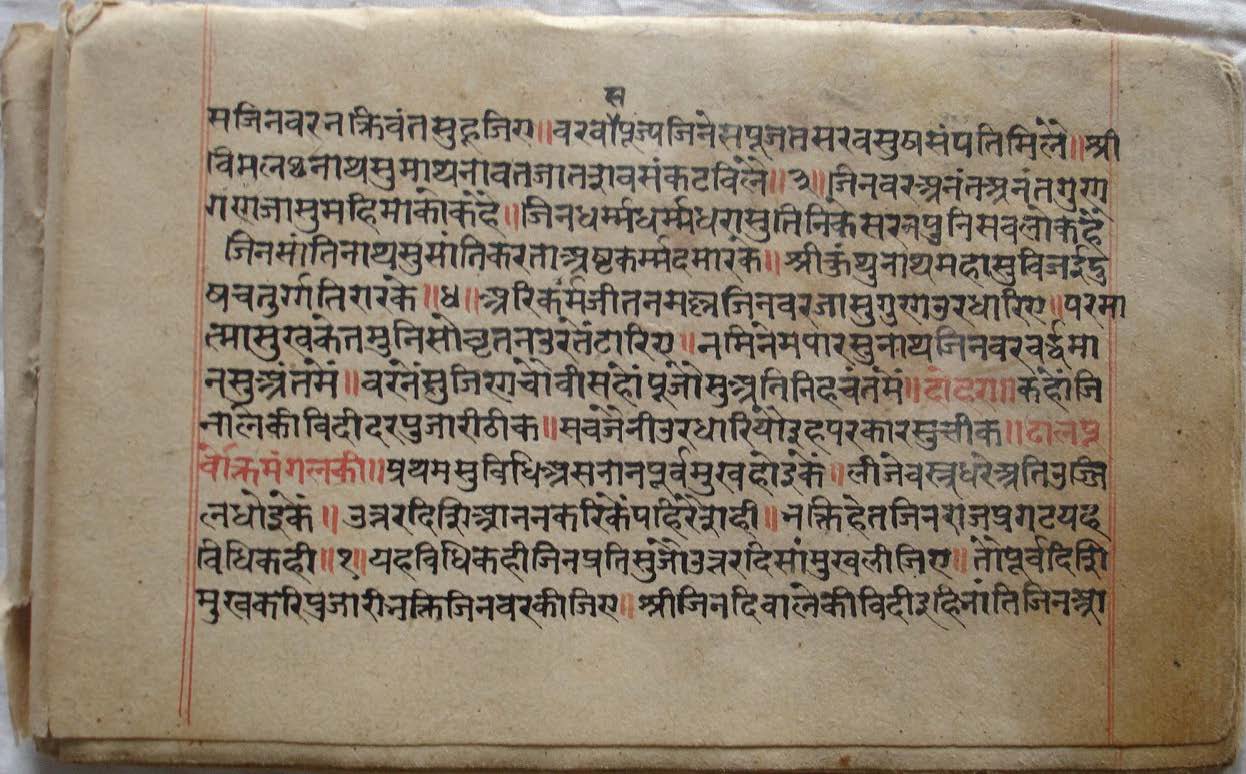 स
सजिनवरनक्तिवंतसुहूजिए॥वरवापूज्यजिनेसपूजतसरवसुषसंपतिमिलै॥श्री
विमलनाथसुमाथनावतजातरोवसंकटविलै॥३॥जिनवरअनंतअनंतगुण
गणजासुमहिमाकोकहै॥जिनधर्म्मधर्म्मधरासुतिनिकेसरनपुनिसवलोकहैं
जिनसांतिनाथसुसांतिकरताअष्टकर्म्मदमारकै॥श्रीकुंथुनाथमहासुविजईदु
षचतुर्ग्गतिगरकै॥४॥अरिकर्मजीतनमल्लजिनवरजासुगुणउरधारिए॥परमा
त्मासुखकेतमुनिसोवृतनउरतेंटारिए॥नमिनेमपारसुनाथजिनवरवर्द्धमा
नसुअंतमं॥वरनेंसुजिणचौवीसहोंपूजौसुअतितिहचंतमं॥दोहरा॥कहोंजि
नालैकीविदीदरपुजारीठीक॥सवजैनीउरधारियौइहपरकारसुलीक॥ढालपू
र्वोक्तिमंगलकी॥प्रथमसुविधिअसनानपूर्वमुखहोइकें॥लीजेवस्त्रधरेअतिउज्जि
लधोइकें॥उत्तरदिशिआननकरिकेंपहिरैशोही॥नक्तिहेतजिनराजप्रगटयह
विधिकही॥१॥यहविधिकहीजिनप्रतिसुजौउत्तरदिसांमुखलीजिए॥तौपूर्वदिशि
मुखकरिपुजारीनक्तिजिनवरकीजिए॥श्रीजिनदिवालेकीविदीइहिनांतिजिनआ